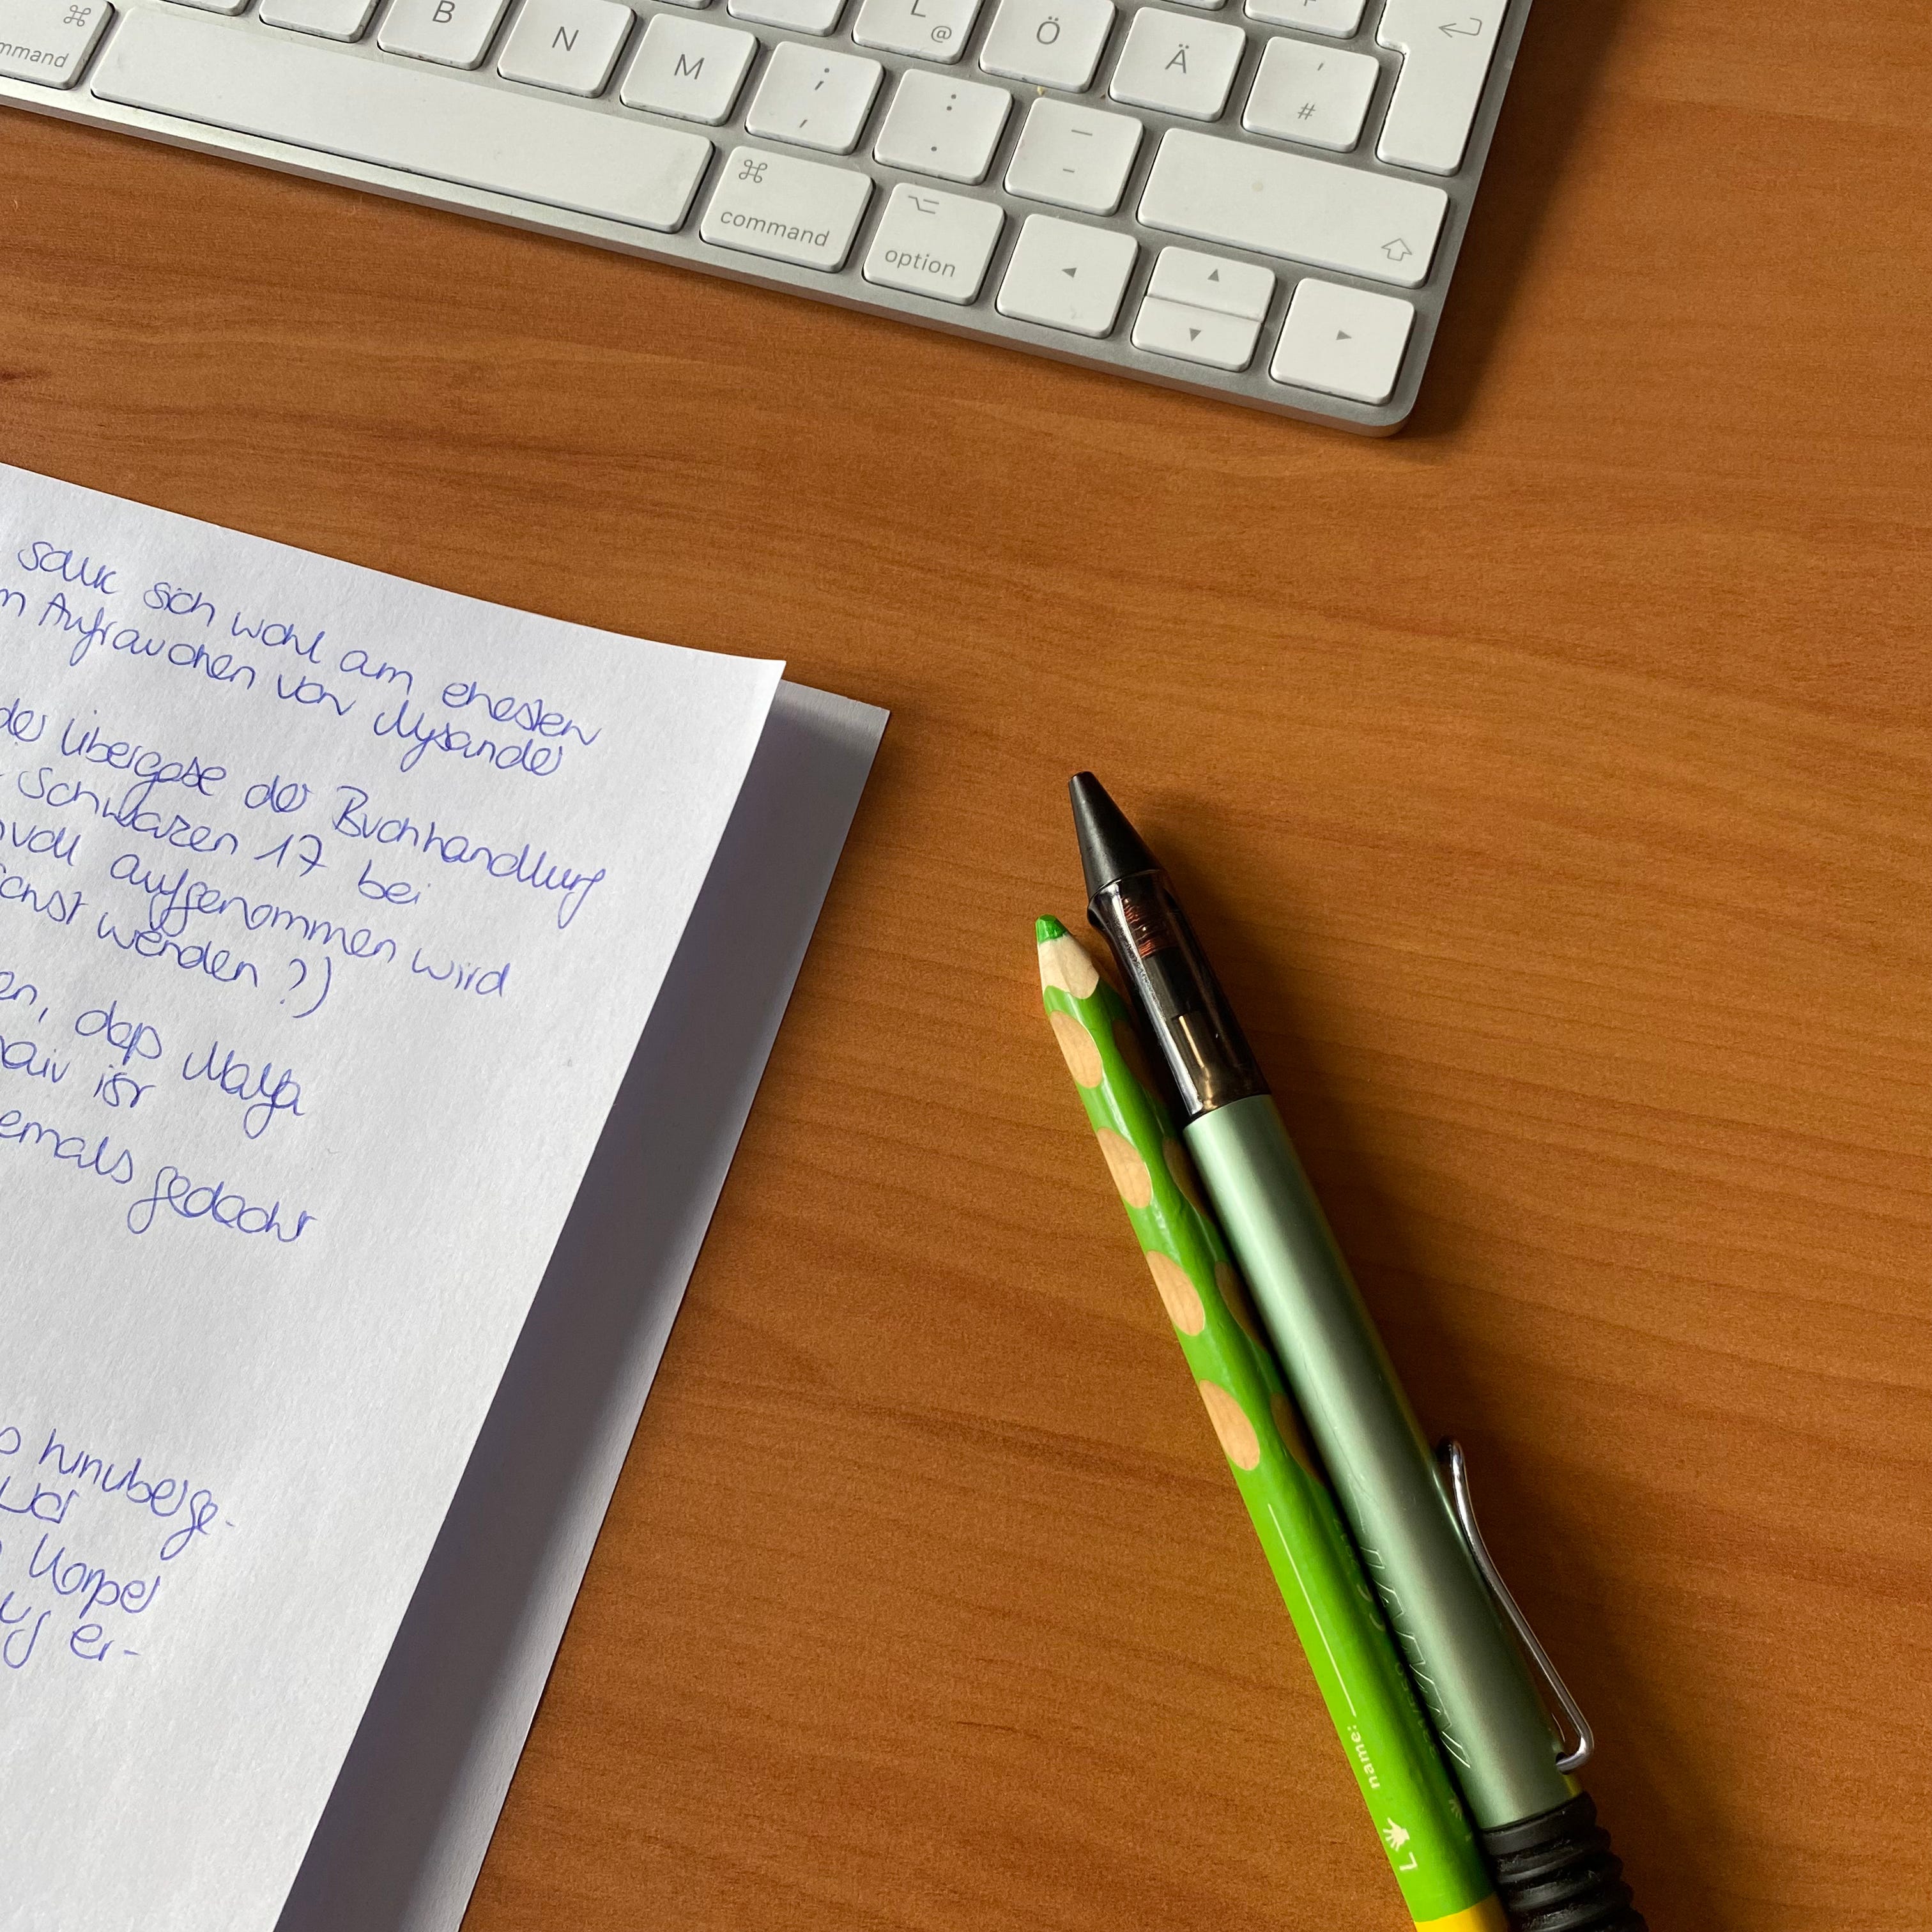 ⌘ B N M L @ Ö Ä ' #
command ; , : . — -
⌘ command
⌥ option
sich wohl am ehesten
Aufrauchen von Mysander
der Übergabe der Buchhandlung
Schwarzen 17 bei
voll aufgenommen wird
werden ?)
en, daß Maya
naiv ist
emals gedacht
hinüberge-
Körper
er-
name:
L